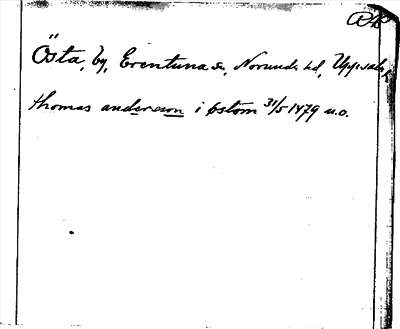 DR
Östa, by, Erentuna sn, Norunds hd, Uppsala l.
thomas anderson i østom 31/5 1479 u.o.